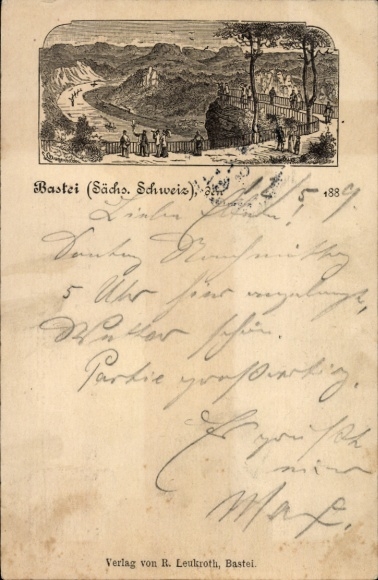 Bastei (Sächs. Schweiz), den 12/5 1889.
Liebe Eltern!
Sontag Nachmittag
5 Uhr hier angelangt,
Wetter schön.
Partie großartig.
Es grüßt
Max.
Verlag von R. Leukroth, Bastei.